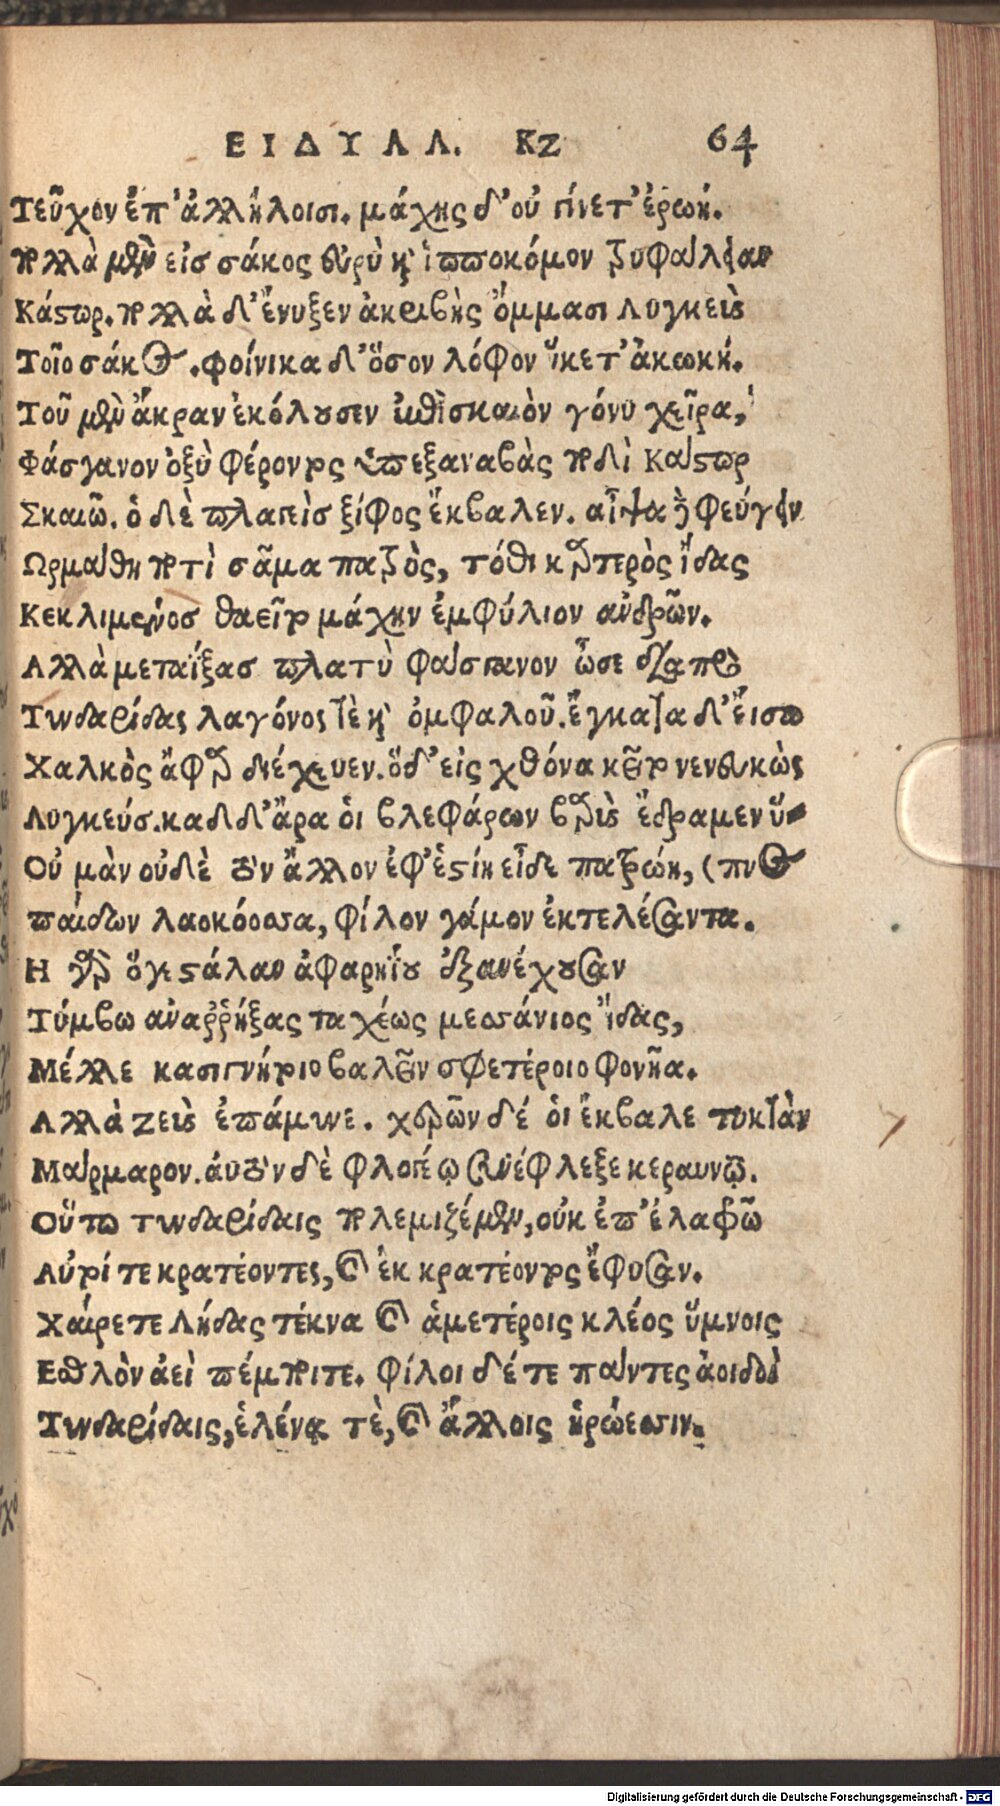 ΕΙΔΥΛΛ. ΚΖ 64
Τεῦχον ἐπ' ἀλλήλοισι. μάχης δ' οὐ γίνετ' ἐρωή.
Πολλὰ μὲν εἰσ σάκος εὐρὺ καὶ ἱπποκόμον τρυφάλειαν
Κάστωρ. πολλὰ δ' ἔνυξεν ἀκριβὴς ὄμμασι Λυγκεὺς
Τοῖο σάκος. φοίνικα δ' ὅσον λόφον ἵκετ' ἀκωκή.
Τοῦ μὲν ἄκραν ἐκόλουσεν ἐπὶ σκαιὸν γόνυ χεῖρα,
Φάσγανον ὀξὺ φέροντος ὑπεξαναβὰς ποδὶ Κάστωρ
Σκαιῶ. ὁ δὲ πλαγεὶσ ξίφος ἔκβαλεν. αἶψα δὲ φεύγειν
Ωρμάθη ποτὶ σᾶμα πατρὸς, τόθι καρτερὸς ἴδας
Κεκλιμένοσ θαεῖτο μάχην ἐμφύλιον ἀνδρῶν.
Αλλὰ μεταΐξασ πλατὺ φάσγανον ὦσε διαπρὸ
Τυνδαρίδας λαγόνος τὲ καὶ ὀμφαλοῦ. ἔγκατα δ' εἴσω
Χαλκὸς ἄφαρ διέχευεν. ὅδ' εἰς χθόνα κεῖτο νενευκὼς
Λυγκεύσ. καδδ' ἄρα οἱ βλεφάρων βαρὺς ἔδραμεν ὕ-
Οὐ μὰν οὐδὲ τὸν ἄλλον ἐφ' ἑστίῃ εἶδε πατρώῃ, (πνος
παίδων λαοκόοσσα, φίλον γάμον ἐκτελέσαντα.
Η γὰρ ὅγε στάλαν ἀφαρηΐου ἐξανέχουσαν
Τύμβω ἀναῤῥήξας ταχέως μεσσάνιος ἴδας,
Μέλλε κασιγνήτοιο βαλεῖν σφετέροιο φονῆα.
Αλλὰ Ζεὺς ἐπάμυνε. χερῶν δέ οἱ ἔκβαλε τυκτὰν
Μάρμαρον. αὐτὸν δὲ φλογέῳ συνέφλεξε κεραυνῷ.
Οὕτω τυνδαρίδαις πολεμιζέμεν, οὐκ ἐπ' ἐλαφρῶ
Αὐτοί τε κρατέοντες, καὶ ἐκ κρατέοντος ἔφυσαν.
Χαίρετε Λήδας τέκνα καὶ ἁμετέροις κλέος ὕμνοις
Εσθλὸν ἀεὶ πέμποιτε. φίλοι δέ τε πάντες ἀοιδοὶ
Τυνδαρίδαις, ἑλένᾳ τὲ, καὶ ἄλλοις ἡρώεσσιν.
Digitalisierung gefördert durch die Deutsche Forschungsgemeinschaft - DFG